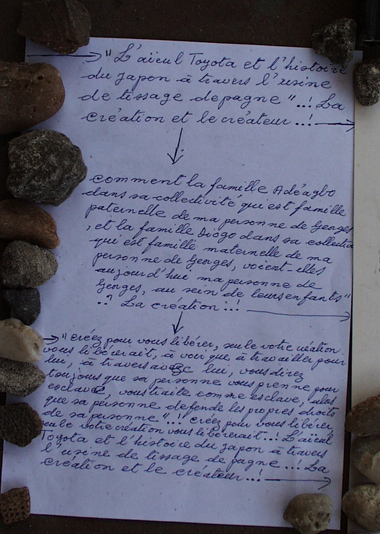 "L'aïeul Toyota et l'histoire
du japon à travers l'usine
de tissage de pagne"..! La
création et le créateur..!
comment la famille Adéagbo
dans sa collectivité qui est famille
paternelle de ma personne de Georges
, et la famille Diogo dans sa collectiv
qui est famille maternelle de ma
personne de Georges, voient-elles
aujourd'hui ma personne de
Georges, au sein de leurs enfants"
..? La création...
"créez pour vous libérer, seule votre création
vous libérerait, à voir que à travailler pour
lui, à travers avec lui, vous direz
toujours que sa personne vous prenne pour
esclave, vous traite comme esclave,
que sa personne défende les propres droits
de sa personne"!.. créez pour vous libérer,
seule votre création vous libérerait... L'aïeul
Toyota et l'histoire du japon à travers
l'usine de tissage de pagne...! La
création et le créateur...!